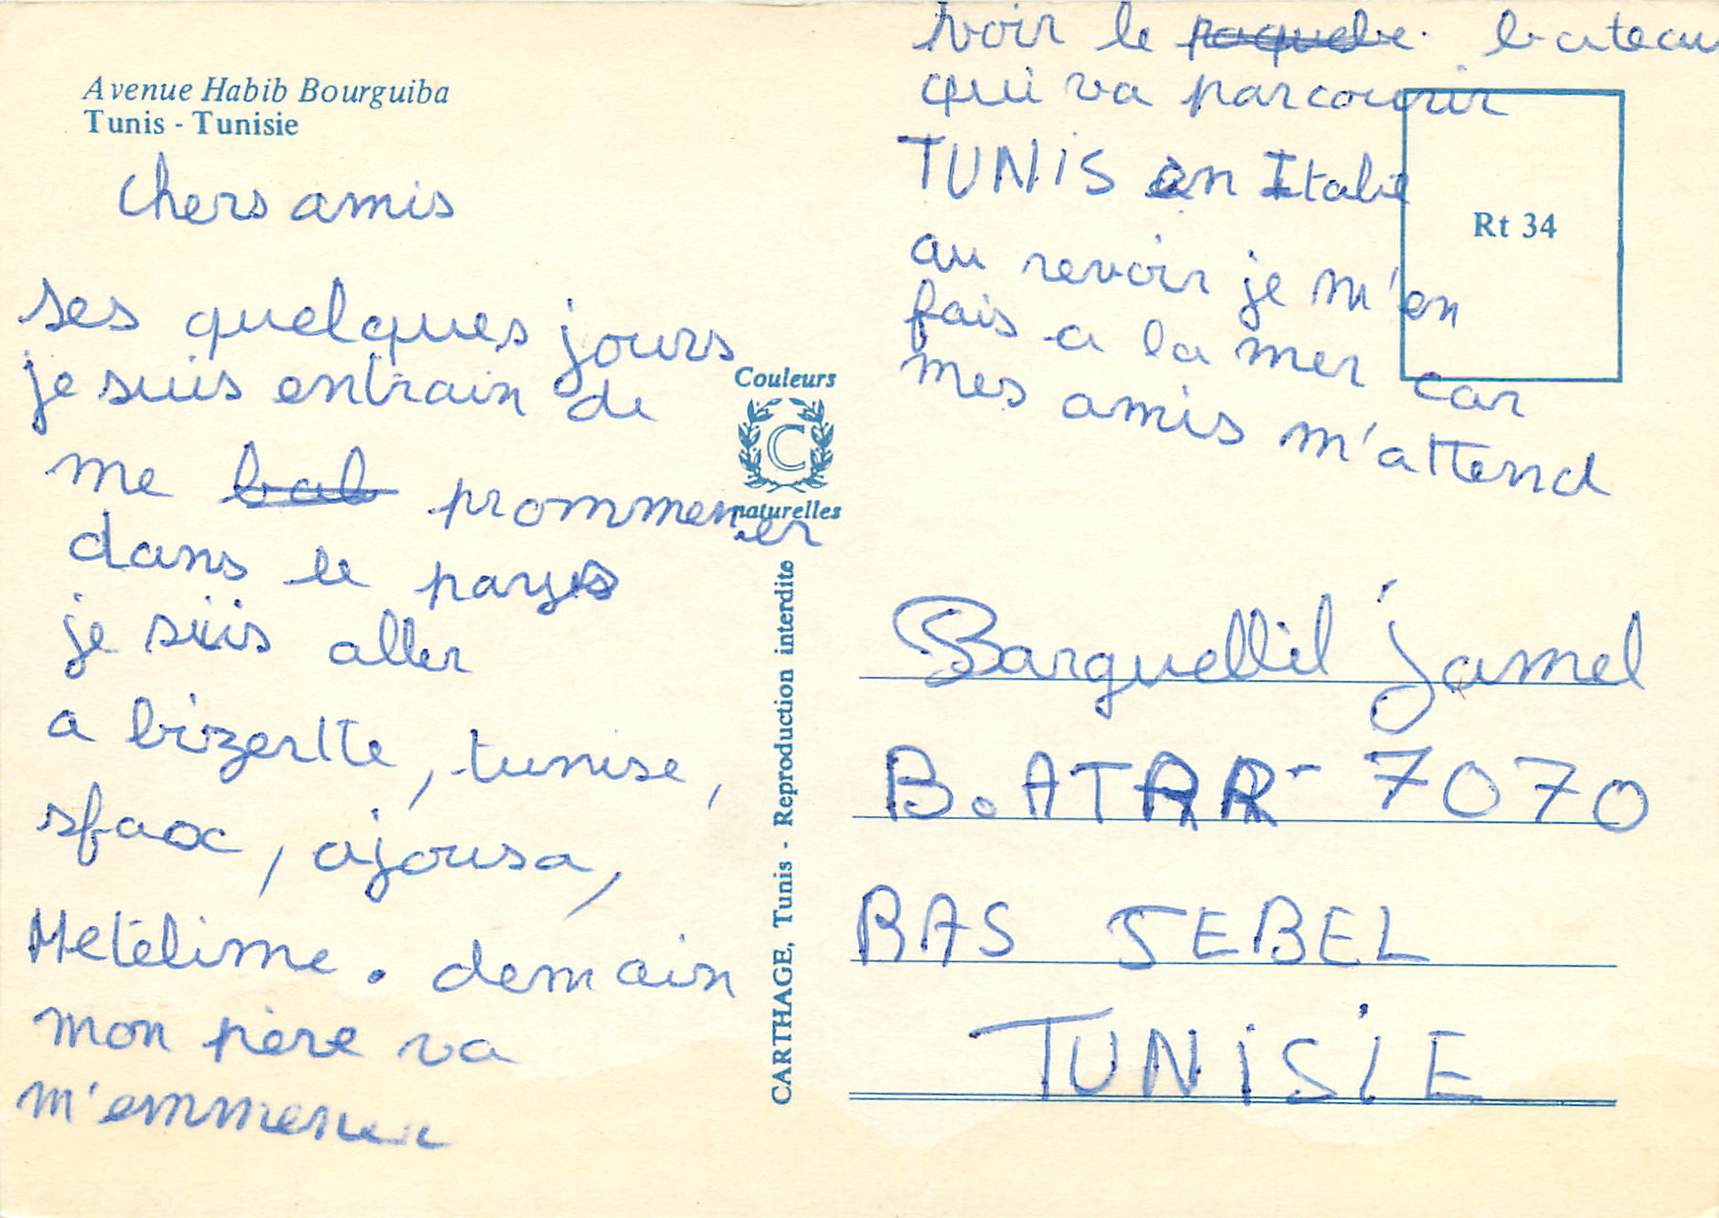 Avenue Habib Bourguiba
Tunis - Tunisie
Chers amis
ses quelques jours
je suis entrain de
me bal prommener
dans le pays
je suis aller
a bizertte, tunise,
sfaox, ajousa,
Metélime. demain
mon père va
m'emmener
voir le paquebe bateau
qui va parcourir
TUNIS en Italie
au revoir je m'en
fais a la mer car
mes amis m'attend
Rt 34
Couleurs
C
naturelles
CARTHAGE, Tunis - Reproduction interdite
Barguellil Jamel
B. ATAR - 7070
RAS JEBEL
TUNISIE